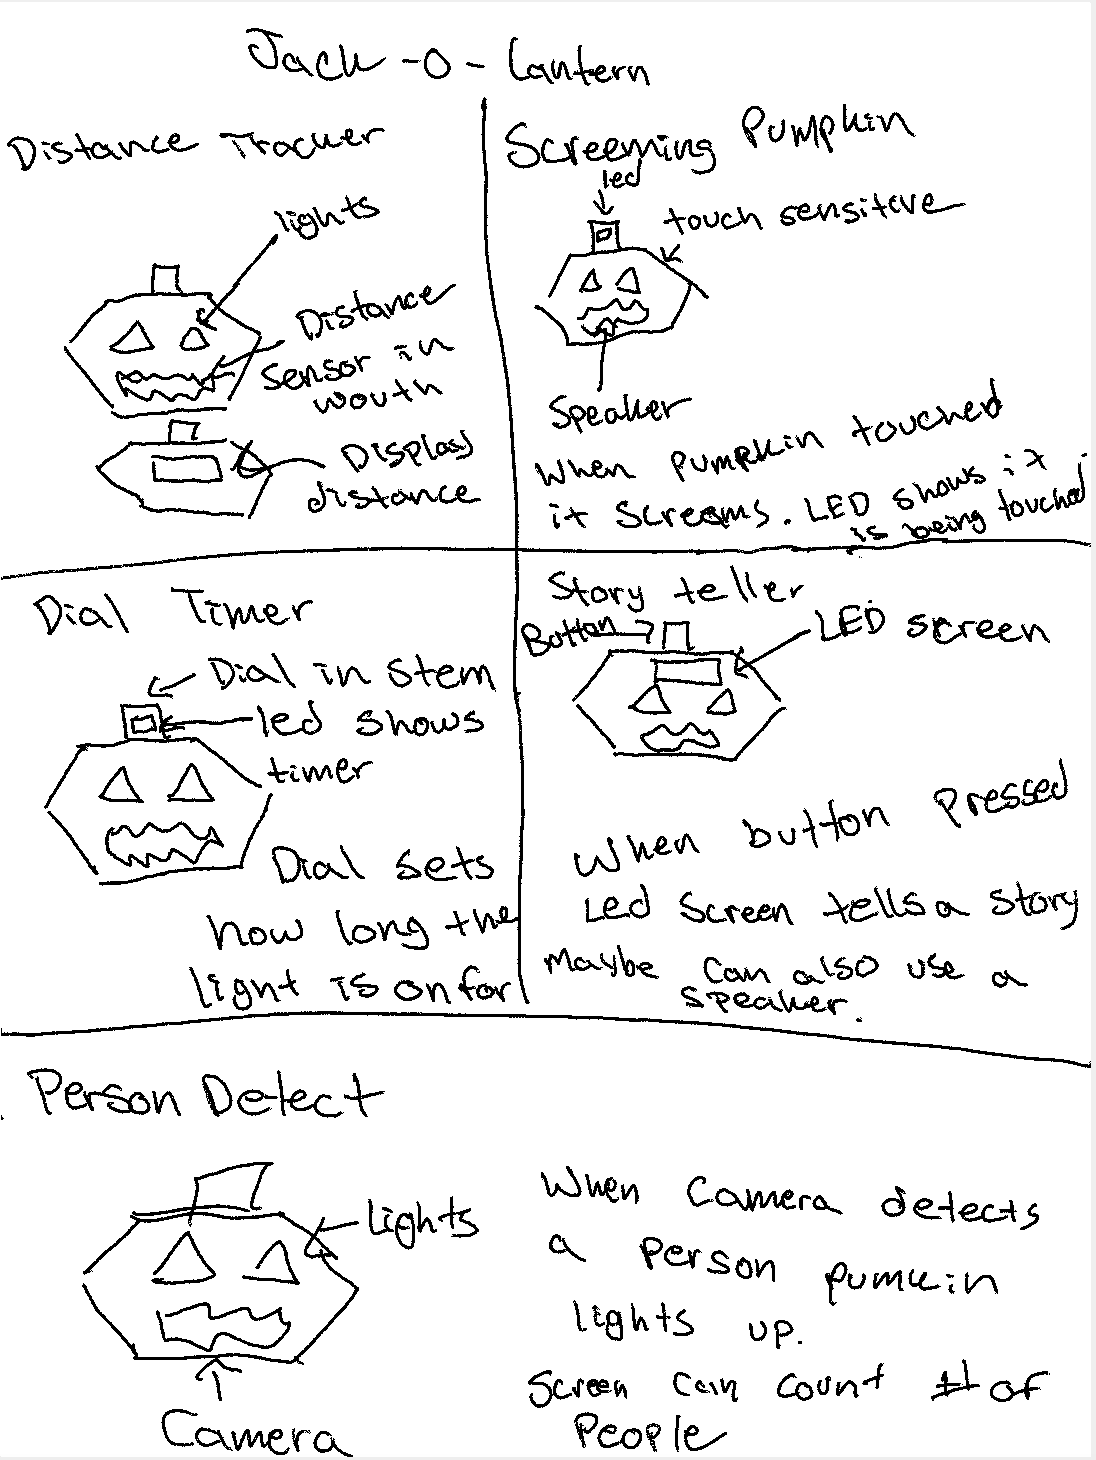 Jack-O-Lantern
Distance Tracker
lights
Distance
Sensor in
mouth
Display
distance
Screeming Pumpkin
led
touch sensitive
Speaker
When Pumpkin touched
it screams. LED shows it
is being touched
Dial Timer
Dial in Stem
led shows
timer
Dial sets
how long the
light is on for
Story teller
Button
LED screen
When button Pressed
Led Screen tells a story
Maybe can also use a
speaker.
Person Detect
Lights
Camera
When Camera detects
a person pumkin
lights up.
Screen can count # of
People